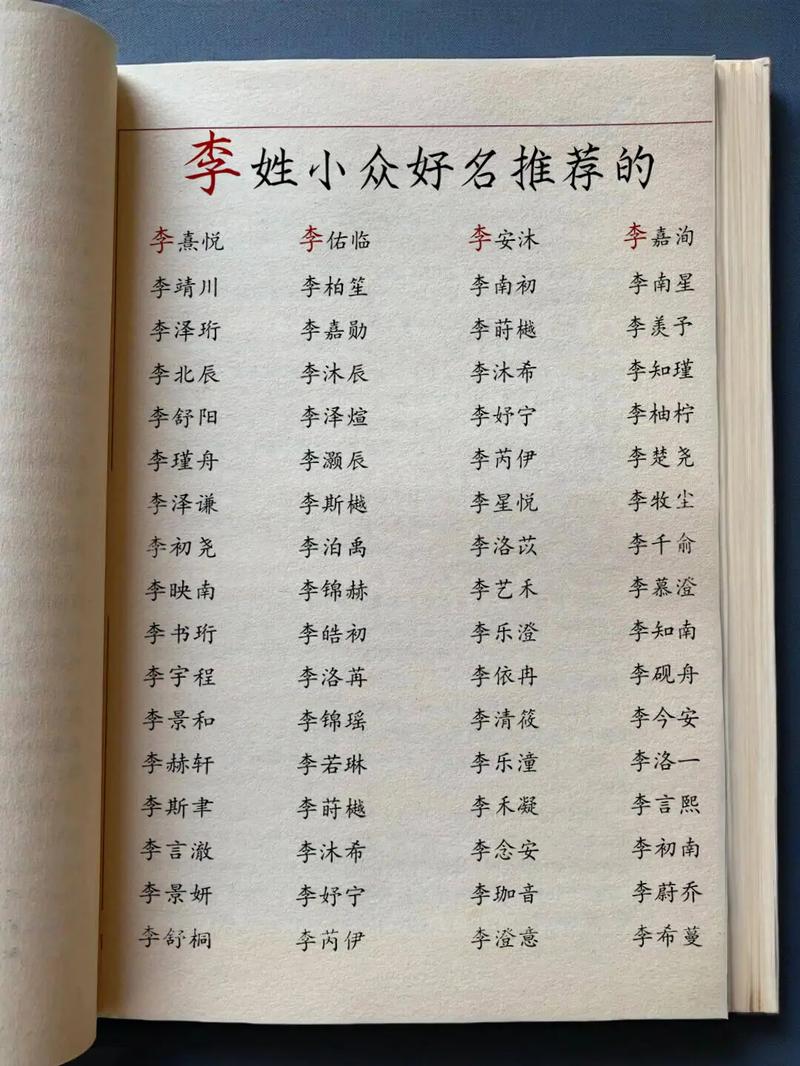 李姓小众好名推荐的
李熹悦 李佑临 李安沐 李嘉洵
李靖川 李柏笙 李南初 李南星
李泽珩 李嘉勋 李莳樾 李羡予
李北辰 李沐辰 李沐希 李知瑾
李舒阳 李泽煊 李妤宁 李柚柠
李瑾舟 李灏辰 李芮伊 李楚尧
李泽谦 李斯樾 李星悦 李牧尘
李初尧 李泊禹 李洛苡 李千俞
李映南 李锦赫 李艺禾 李慕澄
李书珩 李皓初 李乐澄 李知南
李宇程 李洛苒 李依冉 李砚舟
李景和 李锦瑶 李清筱 李今安
李赫轩 李若琳 李乐潼 李洛一
李斯聿 李莳樾 李禾凝 李言熙
李言澈 李沐希 李念安 李初南
李景妍 李妤宁 李珈音 李蔚乔
李舒桐 李芮伊 李澄意 李希蔓